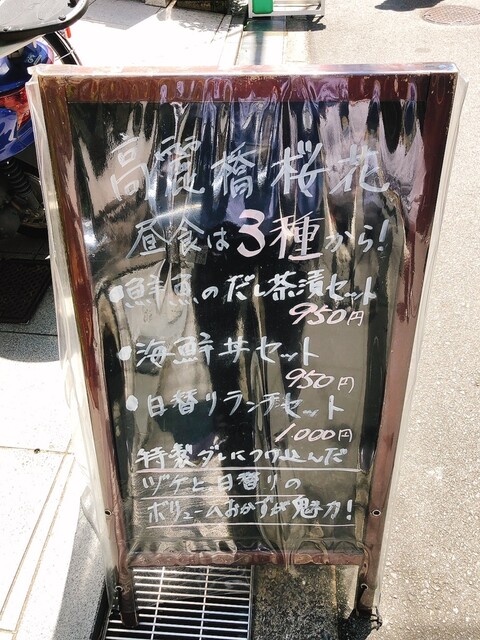 高麗橋桜花
昼食は3種から!
•鮮魚のだし茶漬セット
950円
•海鮮丼セット
950円
•日替りランチセット
1.000円
特製ダレにつけ込んだ
ヅケと日替りの
ボリュームおかずが魅力!